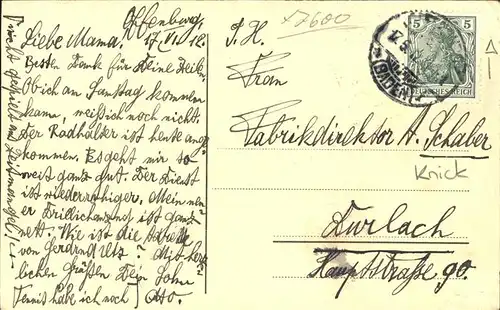 Offenburg,
17. VI. 12.
Liebe Mama!
Besten Dank für Deine Zeilen.
Ob ich am Samstag kommen
kann, weiß ich noch nicht.
Der Radhalter ist heute ange
kommen. Es geht mir so
weit ganz gut. Der Dienst
ist wieder ruhiger. Mein neu
er Drillichanzug ist ganz
nett. Wie ist die
von Gerd und Utz? Mit herz
lichen Grüßen Dein Sohn
Tennis habe ich noch Otto.
nicht gespielt aus Zeitmangel!
17600
5 5
DEUTSCHES REICH
(BADEN)
S. H.
Frau
Fabrikdirektor A. Schaber
Knick
Durlach
Hauptstraße 90.